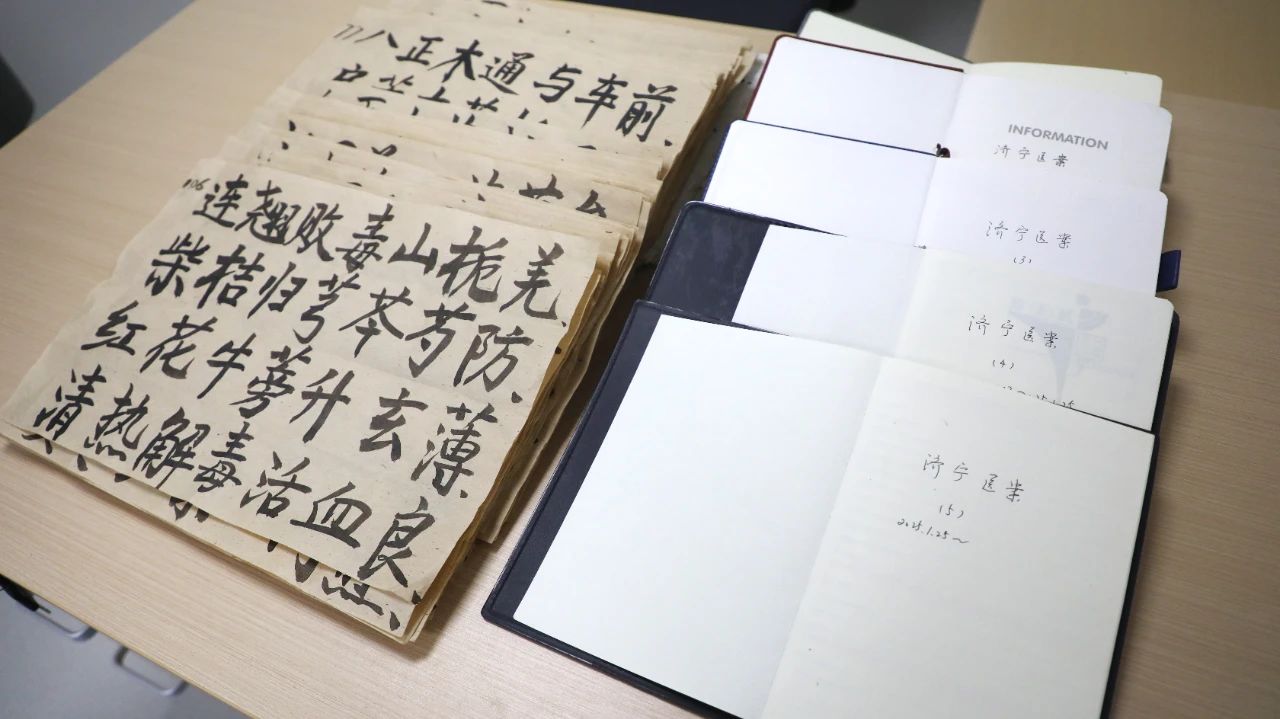 77
八正木通与车前
106
连翘败毒山栀羌
柴桔归芎苓芍防
红花牛蒡升玄薄
清热解毒活血良
INFORMATION
济宁医案
济宁医案
(3)
济宁医案
(4)
济宁医案
(5)
2025.1.25~